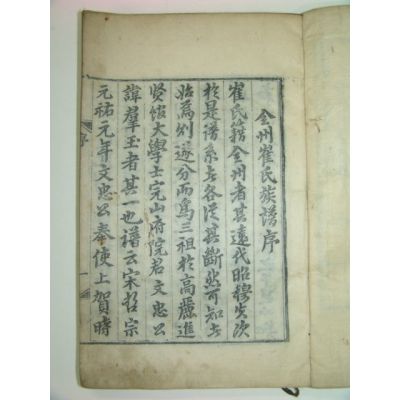 全州崔氏族譜序
崔氏籍全州者其遠代昭穆失次
於是譜系者各從其斷然可知者
始為別遂分而為三祖於高麗進
賢館大學士完山府院君文忠公
諱羣玉者其一也譜云宋哲宗
元祐元年文忠公奉使上賀時